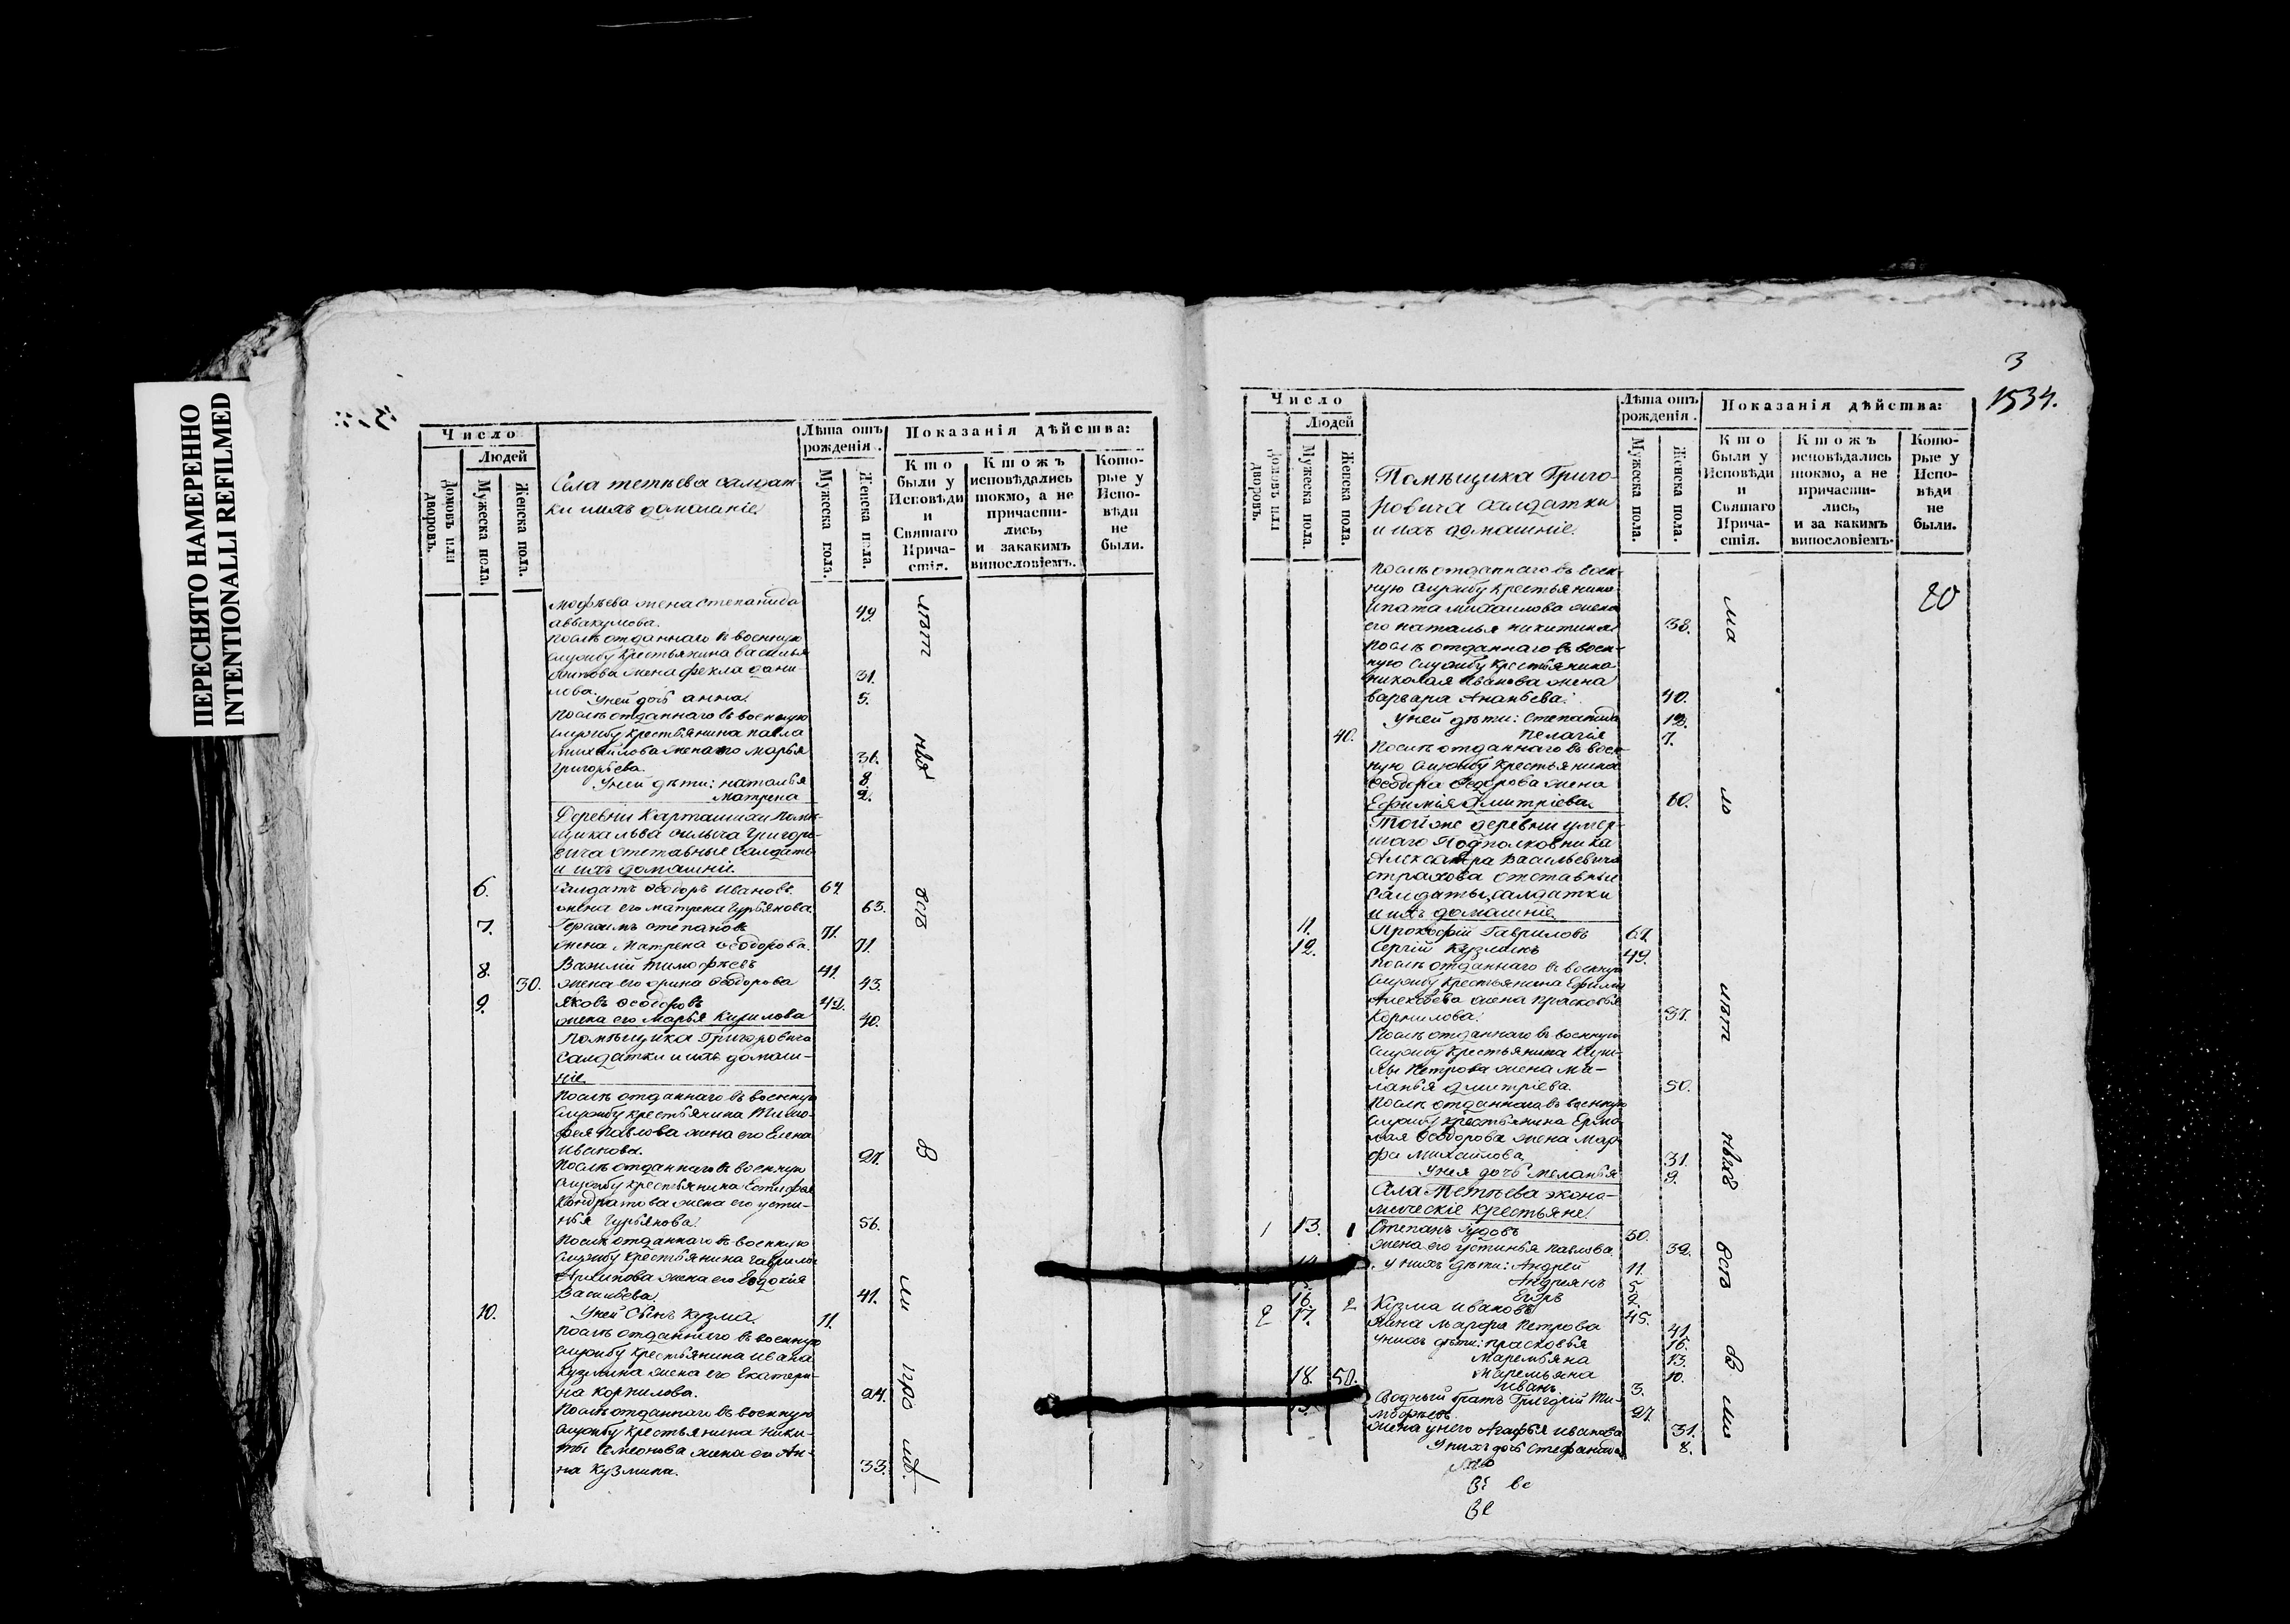 ПЕРЕСНЯТО НАМЕРЕННО
INTENTIONALLI REFILMED
Число
Людей
Домовъ или дворовъ.
Мужеска пола.
Женска пола.
Села тетѣева салдат
ки ихъ домашніе
Лѣта отъ рожденія.
Мужеска пола.
Женска пола.
Показанія дѣйства:
Кто были у Исповѣди и Святаго Причастія.
Ктожъ исповѣдались токмо, а не причастились, и закакимъ винословіемъ.
Которые у Исповѣди не были.
мофѣева жена степанида
аввакумова. 49.
послѣ отданнаго въ военную
службу крестьянина василья
жена фекла дани-
лова. 31.
У ней дочь анна. 5.
послѣ отданнаго въ военную
службу крестьянина павла
михайлова жена его марья
григорьева. 36.
У ней дѣти: наталья 8.
матрена 2.
Деревни Карташихи помѣ-
щика льва Григоро-
вича отставные салдаты
и ихъ домашніе.
6. Салдатъ ѳеодоръ Ивановъ. 64
жена его матрена гурьянова 63.
7. Герасимъ степановъ 71.
жена матрена ѳеодорова. 71.
8. Василій тимофѣевъ 41.
30. жена его орина ѳеодорова 43.
9. яковъ ѳеодоровъ 42.
жена его марья кирилова 40.
Помѣщика Григоровича
Салдатки и ихъ домаш-
ніе.
послѣ отданнаго въ военную
службу крестьянина Тимо-
фея павлова жена его Елена
иванова. 27.
послѣ отданнаго въ военную
службу крестьянина Естифея
Кондратова жена его усти-
нья гурьянова. 56.
послѣ отданнаго въ военную
службу крестьянина гаврилы
Архипова жена его Евдокія
Васильева. 41.
10. У ней сынъ кузма. 11.
послѣ отданнаго въ военную
службу крестьянина ивана
кузмина жена его екатери-
на корнилова. 24.
послѣ отданнаго въ военную
службу крестьянина ники-
ты семенова жена его Ан-
на Кузмина. 33.
3
1534.
Число
Людей
Домовъ или дворовъ.
Мужеска пола.
Женска пола.
Помѣщика Григо-
ровича салдатки
и ихъ домашніе.
Лѣта отъ рожденія.
Мужеска пола.
Женска пола.
Показанія дѣйства:
Кто были у Исповѣди и Святаго Причастія.
Ктожъ исповѣдались токмо, а не причастились, и за какимъ винословіемъ.
Которые у Исповѣди не были.
послѣ отданнаго въ воен-
ную службу крестьянина
ипата михаилова жена
его наталья никитина 38.
20
послѣ отданнаго въ воен-
ную службу крестьянина
николая иванова жена
варвара Ананьева. 40.
У ней дѣти: степанида 12.
40. пелагія 7.
послѣ отданнаго въ воен-
ную службу крестьянина
ѳеодора ѳеодорова жена
Ефимія дмитріева 60.
Той же деревни умер-
шаго Подполковника
Александра васильевича
страхова отставные
салдаты, салдатки
и ихъ домашніе
11. Прокофій Гавриловъ 67.
12. Сергій кузминъ 49.
послѣ отданнаго въ военную
службу крестьянина Ефима
Алексѣева жена прасковья
Корнилова. 37.
послѣ отданнаго въ военную
службу крестьянина Кири-
лы петрова жена ма-
ланья дмитріева. 50.
послѣ отданнаго въ военную
службу крестьянина Ермо-
лая ѳеодорова жена мар
фа михайлова 31.
У нея дочь меланья 9.
Села Тетѣева эконо-
мическіе крестьяне.
1 13. 1 Степанъ 30.
жена его устинья павлова. 32.
у нихъ дѣти: Андрей 11.
Андреянъ 5.
16. Егоръ 2.
2 17. 2 Кузма ивановъ 45.
жена марфа петрова 41.
У нихъ дѣти: прасковья 16.
маремьяна 13.
маремьяна 10.
18. 50. иванъ 3.
Сводный братъ Григорій Ти-
мофѣевъ. 27.
жена у него Агафья иванова 31.
У нихъ дочь стефанида 8.